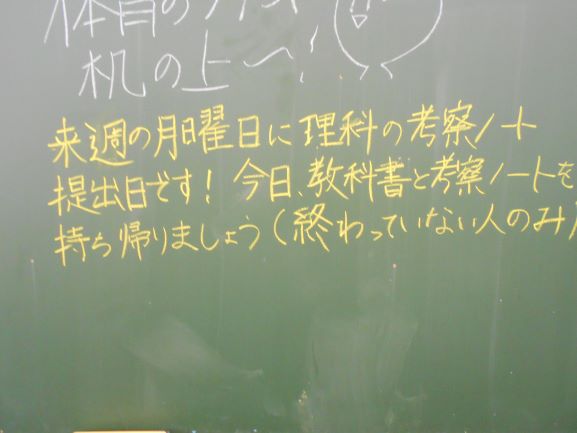 体育の
机の上へ!
来週の月曜日に理科の考察ノート
提出日です!今日、教科書と考察ノートを
持ち帰りましょう(終わっていない人のみ)